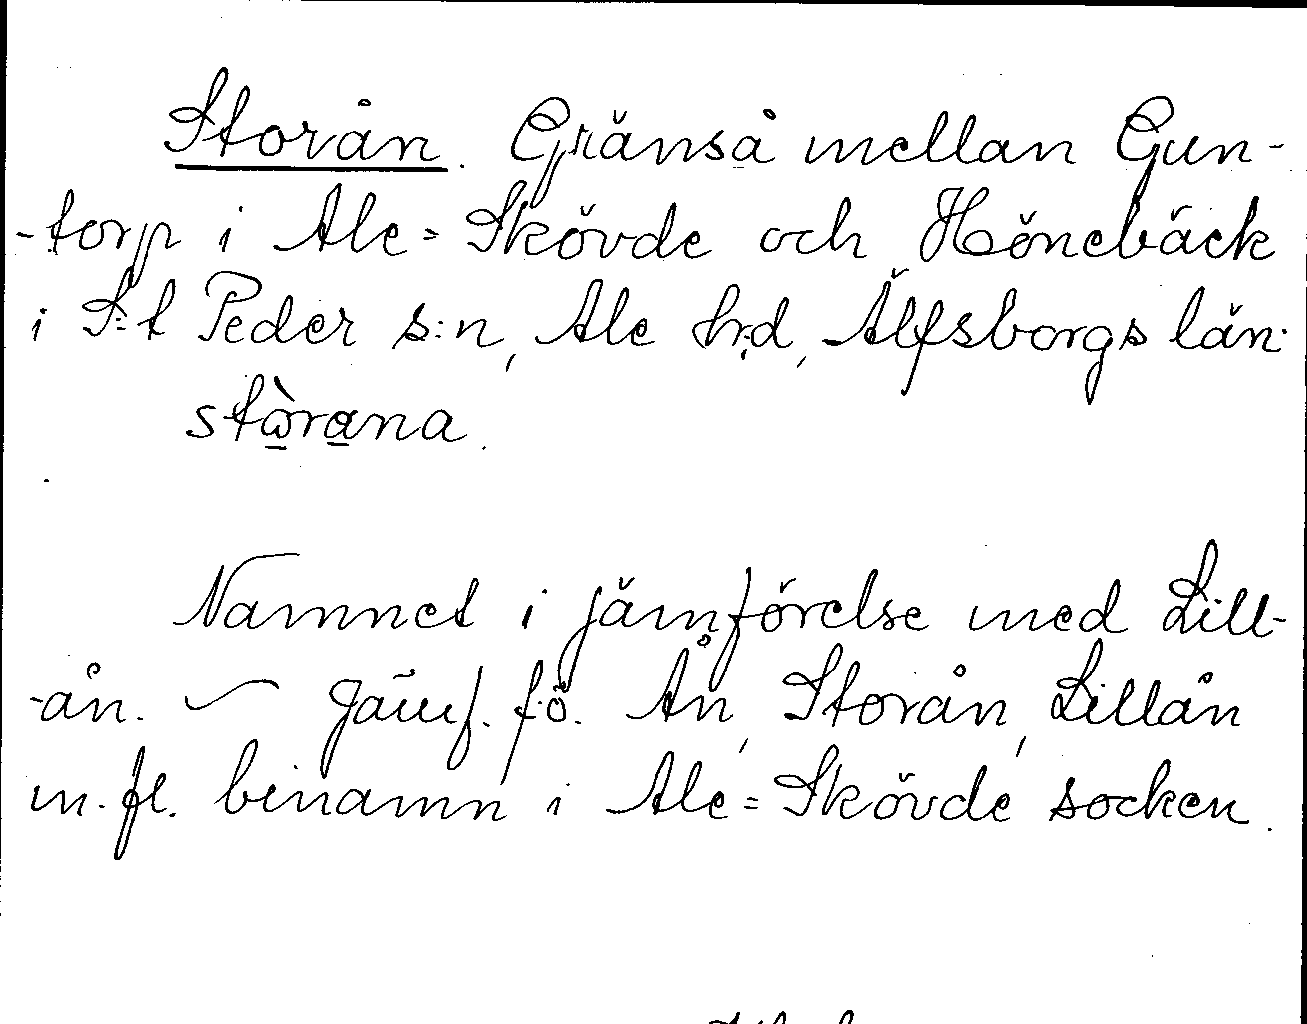 Storån. Gränså mellan Gun-
-torp i Ale-Skövde och Hönebäck
i S:t Peder s:n, Ale h:d, Älfsborgs län.
stòrana.
Namnet i jämförelse med Lill-
-ån. Jämf. fö. Ån, Storån, Lillån
m. fl. binamn i Ale=Skövde socken.